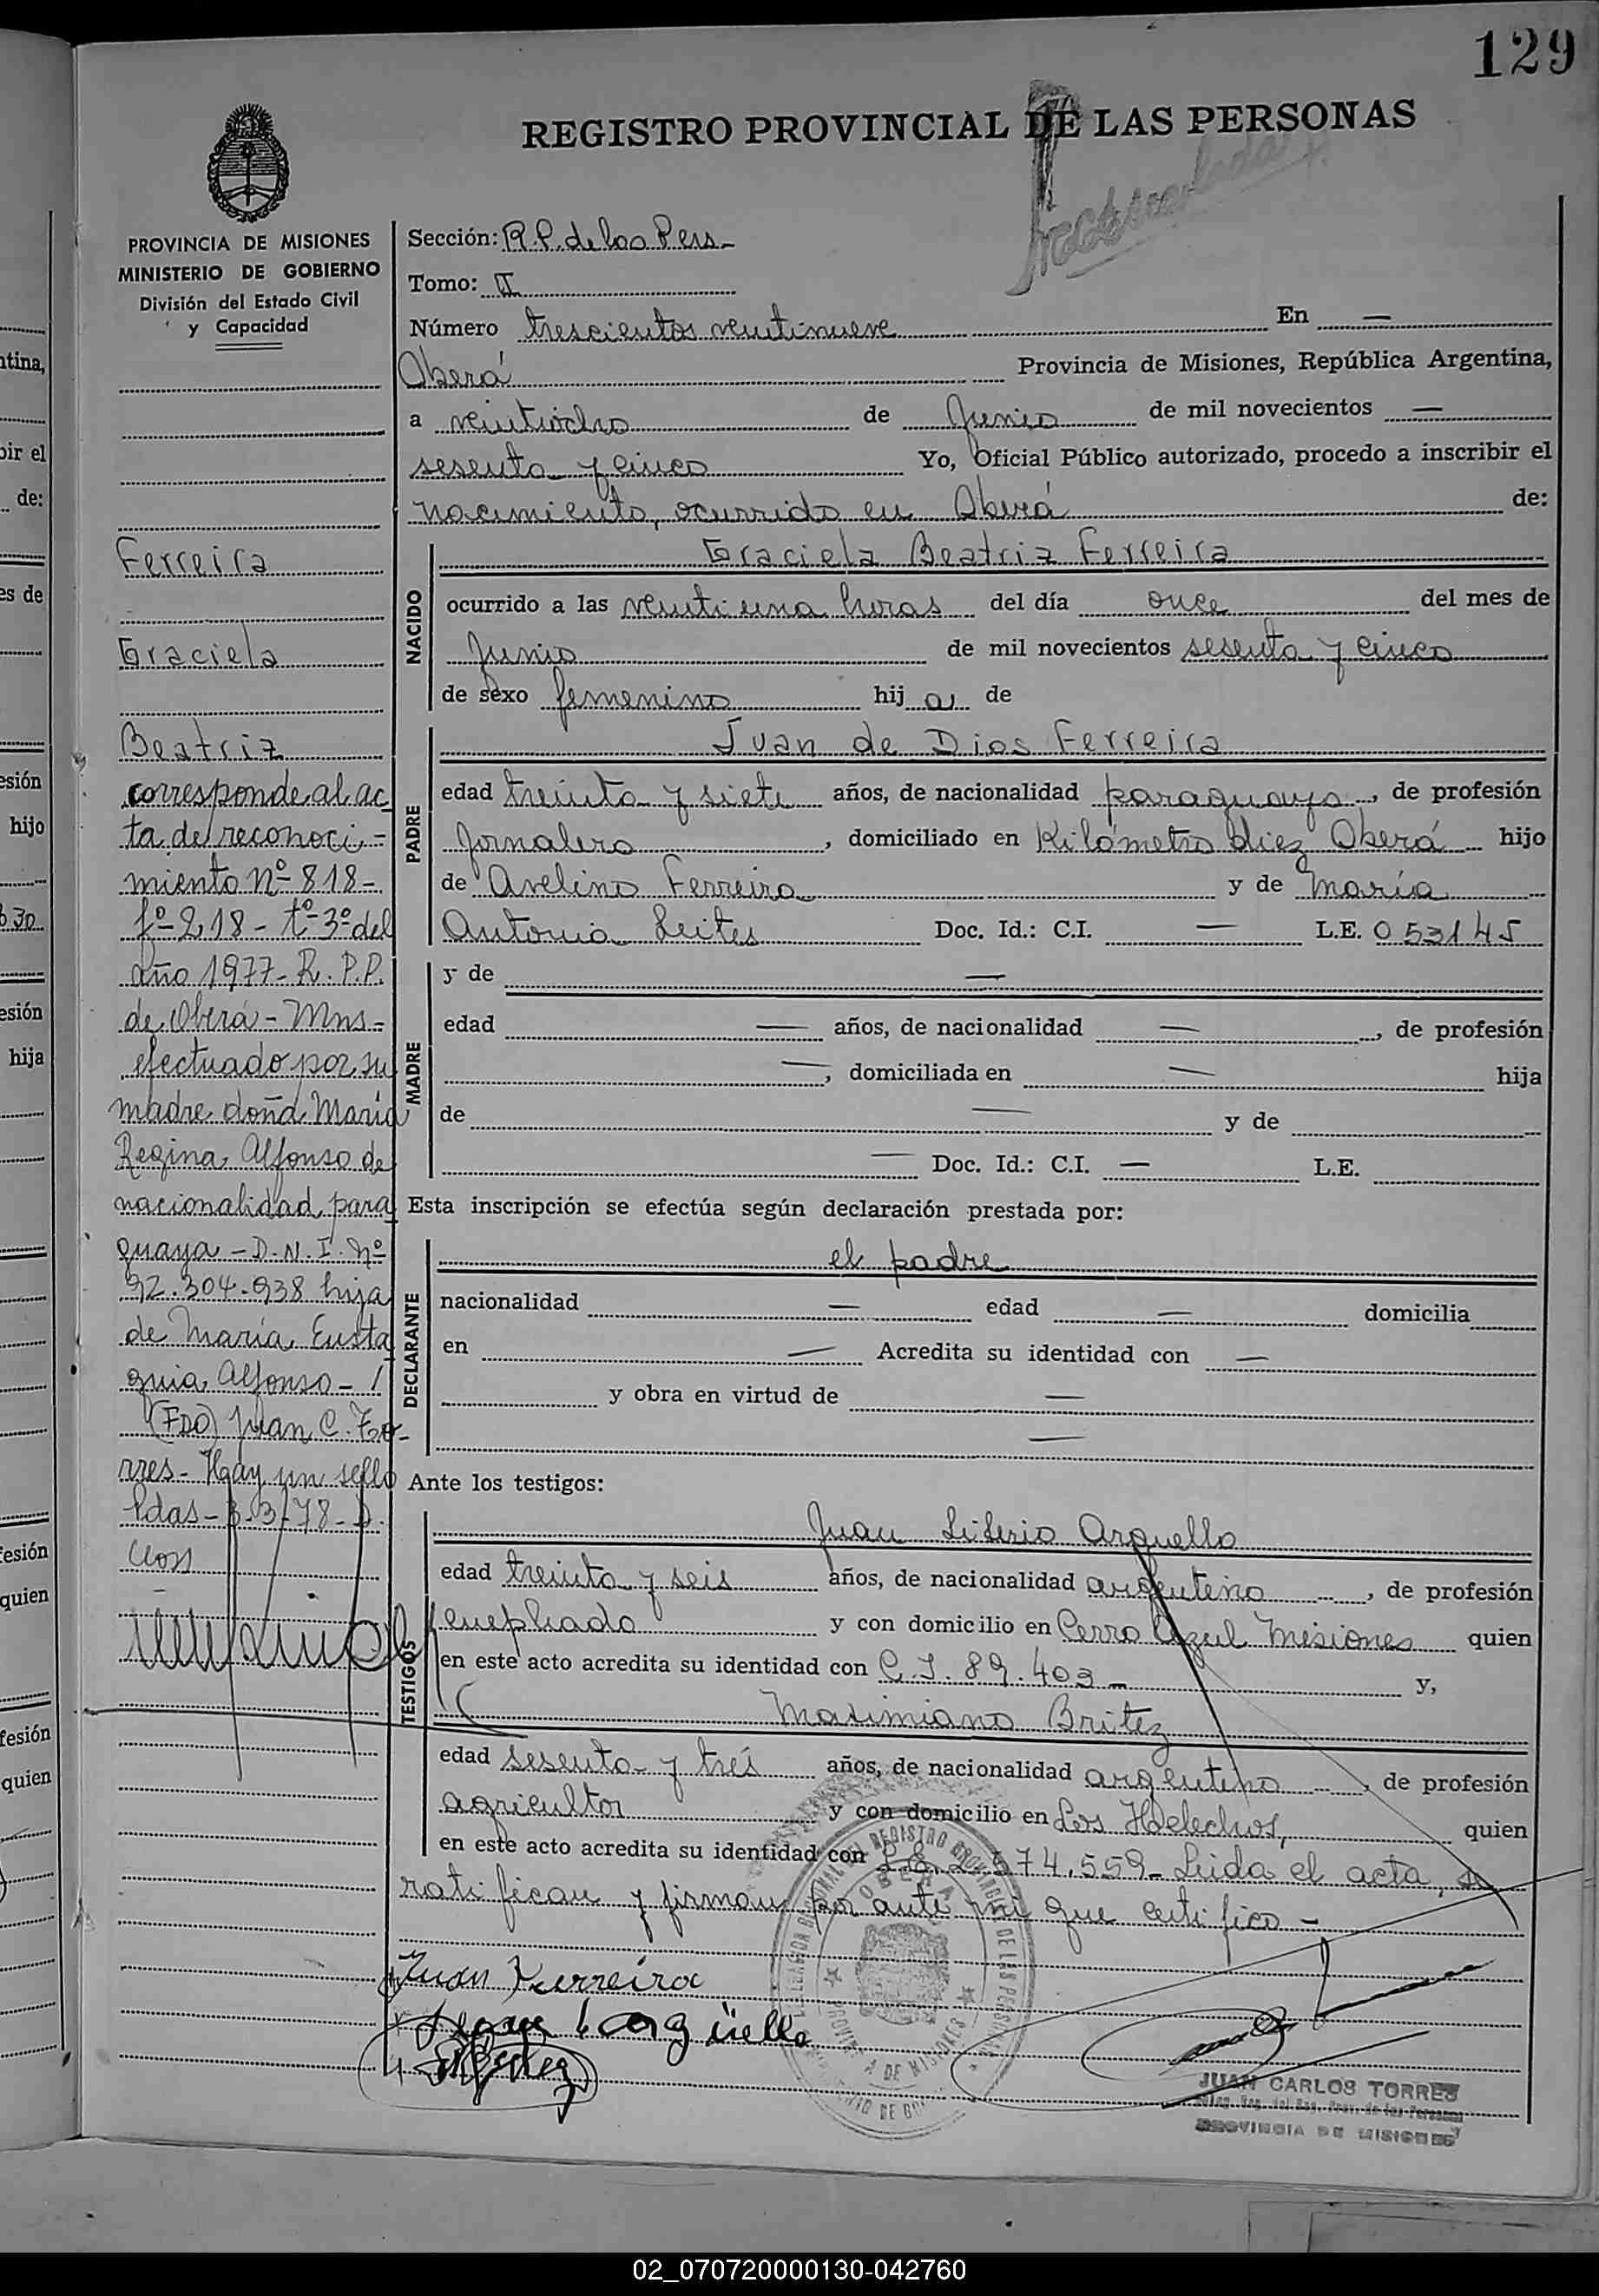 129
REGISTRO PROVINCIAL DE LAS PERSONAS
PROVINCIA DE MISIONES
MINISTERIO DE GOBIERNO
División del Estado Civil
y Capacidad
Ferreira
Graciela
Beatriz
corresponde al ac
ta de reconoci-
miento nº 818-
fº 218 - tº 3º del
año 1977 - R. P. P.
de Oberá - Mns-
efectuado por su
madre doña María
Regina Alfonso de
nacionalidad para
guaya - D.N.I. Nº
92.304.938 hija
de María Eusta
quia Alfonso -
(FDO) Juan C. To-
rres - Hay un sello
Pdas - 3-3-78-
Sección: R.P. de las Pers-
Tomo: II
Número trescientos veintinueve En —
Oberá Provincia de Misiones, República Argentina,
a veintiocho de Junio de mil novecientos —
sesenta y cinco Yo, Oficial Público autorizado, procedo a inscribir el
nacimiento, ocurrido en Oberá de:
NACIDO
Graciela Beatriz Ferreira
ocurrido a las veintiuna horas del día once del mes de
Junio de mil novecientos sesenta y cinco
de sexo femenino hij a de
PADRE
Juan de Dios Ferreira
edad treinta y siete años, de nacionalidad paraguayo, de profesión
Jornalero, domiciliado en Kilómetro diez Oberá hijo
de Avelino Ferreira y de María
Antonia Leites Doc. Id.: C.I. — L.E. 053145
MADRE
y de —
edad — años, de nacionalidad —, de profesión
—, domiciliada en — hija
de — y de
— Doc. Id.: C.I. — L.E.
Esta inscripción se efectúa según declaración prestada por:
DECLARANTE
el padre
nacionalidad — edad — domicilia
en — Acredita su identidad con —
y obra en virtud de —
—
Ante los testigos:
TESTIGOS
Juan Arguello
edad treinta y seis años, de nacionalidad argentino, de profesión
empleado y con domicilio en Cerro Azul Misiones quien
en este acto acredita su identidad con C.I. 89.403 - y,
Maximiano Britez
edad sesenta y trés años, de nacionalidad argentino, de profesión
agricultor y con domicilio en Los Helechos, quien
en este acto acredita su identidad con 574.559 - Leida el acta,
ratifican y firman por ante mí que certifico -
Juan Ferreira
JUAN CARLOS TORRES
PROVINCIA DE MISIONES
tina,
bir el
de:
es de
esión
hijo
esión
hija
fesión
quien
fesión
quien
02_070720000130-042760